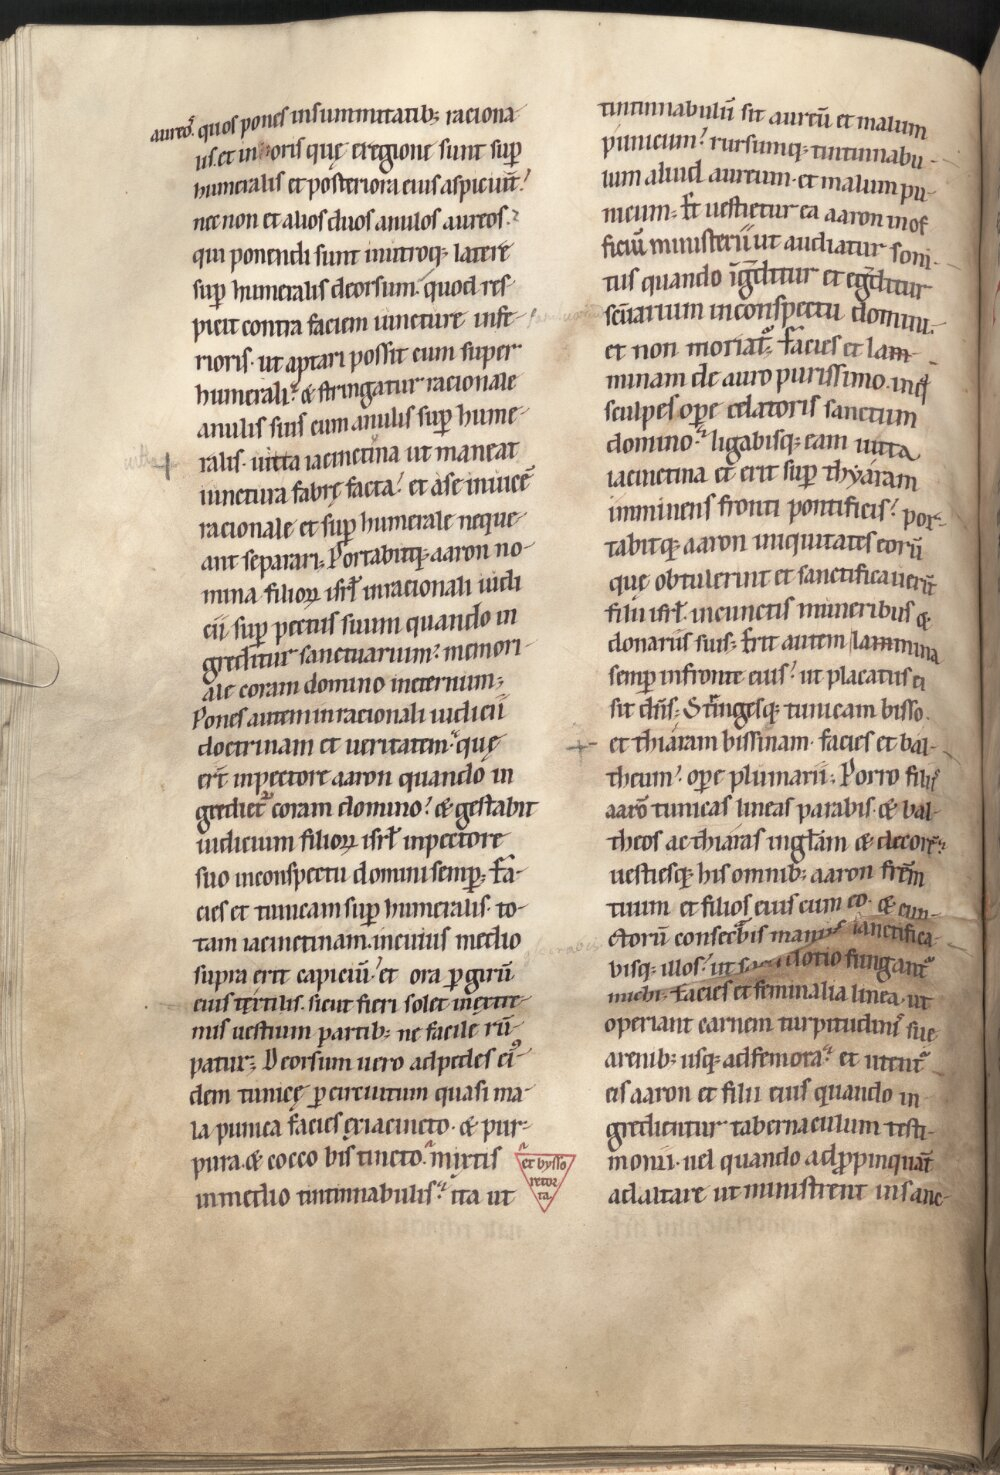 aureos. quos pones insummitatib; raciona
us. et in horis quę eregione sunt sup̄
humeralis et posteriora eius aspiciūt.
nec non et alios duos anulos aureos.
qui ponendi sunt inutroq; latere
sup̄ humeralis deorsum. quod res-
picit contra faciem iuncture infe-
rioris. ut aptari possit cum super
humerali. & stringatur racionale
anulis suis cum anulis sup̄ hume-
ralis. uitta iacinctina ut maneat
iunctura fabrę facta. et àse inuicē
racionale et sup̄ humerale neque-
ant separari; Portabitq; aaron no-
mina filioꝝ isrł inracionali iudi
cii sup̄ pectus suum quando in
greditur sanctuarium. memori-
ale coram domino ineternum;
Pones autem inracionali iudicii
doctrinam et ueritatem. quę
er̄t inpectore aaron quando in
grediet᷑ coram domino. & gestabit
iudicium filioꝝ isrł inpectore
suo inconspectu domini semp̄; Fa-
cies et tunicam sup̄ humeralis. to-
tam iacinctinam. incuius medio
supra erit capiciū. et ora ꝑ girū
eius textilis. sicut fieri solet inextre-
mis uestium partib; ne facile rū-
patur; Deorsum uero adpedes ei᷒-
dem tunicę ꝑ circuitum quasi ma-
la punica facies exiacincto. & pur-
pura. & cocco bis tincto. mixtis
et bysso
retor
ta
inmedio tintinnabulis. ita ut
tintinnabulū sit aureū et malum
punicum. rursumq; tintinnabu-
lum aliud aureum. et malum pu-
nicum; Et uestietur ea aaron inof
ficiū ministerii ut audiatur soni-
tus quando īgr̄ditur et egr̄ditur
sc̄uarium inconspectu domini.
et non moriat᷑; Facies et lam-
minam de auro purissimo. inq̄
sculpes ope celatoris sanctum
domino. ligabisq; eam uitta
iacinctina et erit sup̄ thyáram
imminens fronti pontificis. por-
tabitq; aaron iniquitates eorū
quę obtulerint et sanctificauer̄t
filii isrł. incunctis muneribus &
donariis suis; Erit autem lammina
semp̄ infronte eius. ut placatus ei
sit dn̄s; Stringesq; tunicam bisso.
et thiáram bissinam. facies et bal-
theum. ope plumarii; Porro filiis
aarō tunicas lineas parabis. & bal-
theos ac thiáras inglam & decorē.
uestiesq; his omnib; aaron fr̄em
tuum et filios eius cum eo. & cun-
ctorū consecbis manus sanctifica-
bisq; illos. ut sacerdotio fungant᷑
michi; Facies et feminalia linea. ut
operiant carnem turpitudinis sue
arenib; usq; adfemora. et utent᷑
eis aaron et filii eius quando in-
gredientur tabernaculum testi-
monii. uel quando adp̄pinquāt
adaltare ut ministrent insanc-